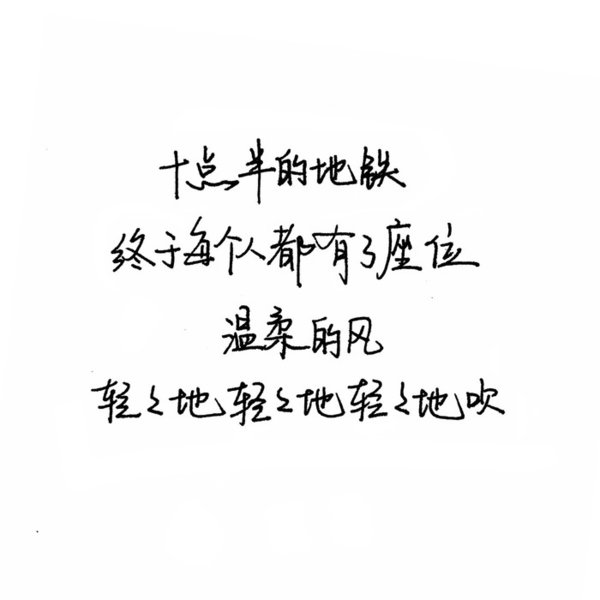 十点半的地铁
终于每个人都有了座位
温柔的风
轻々地轻々地轻々地吹